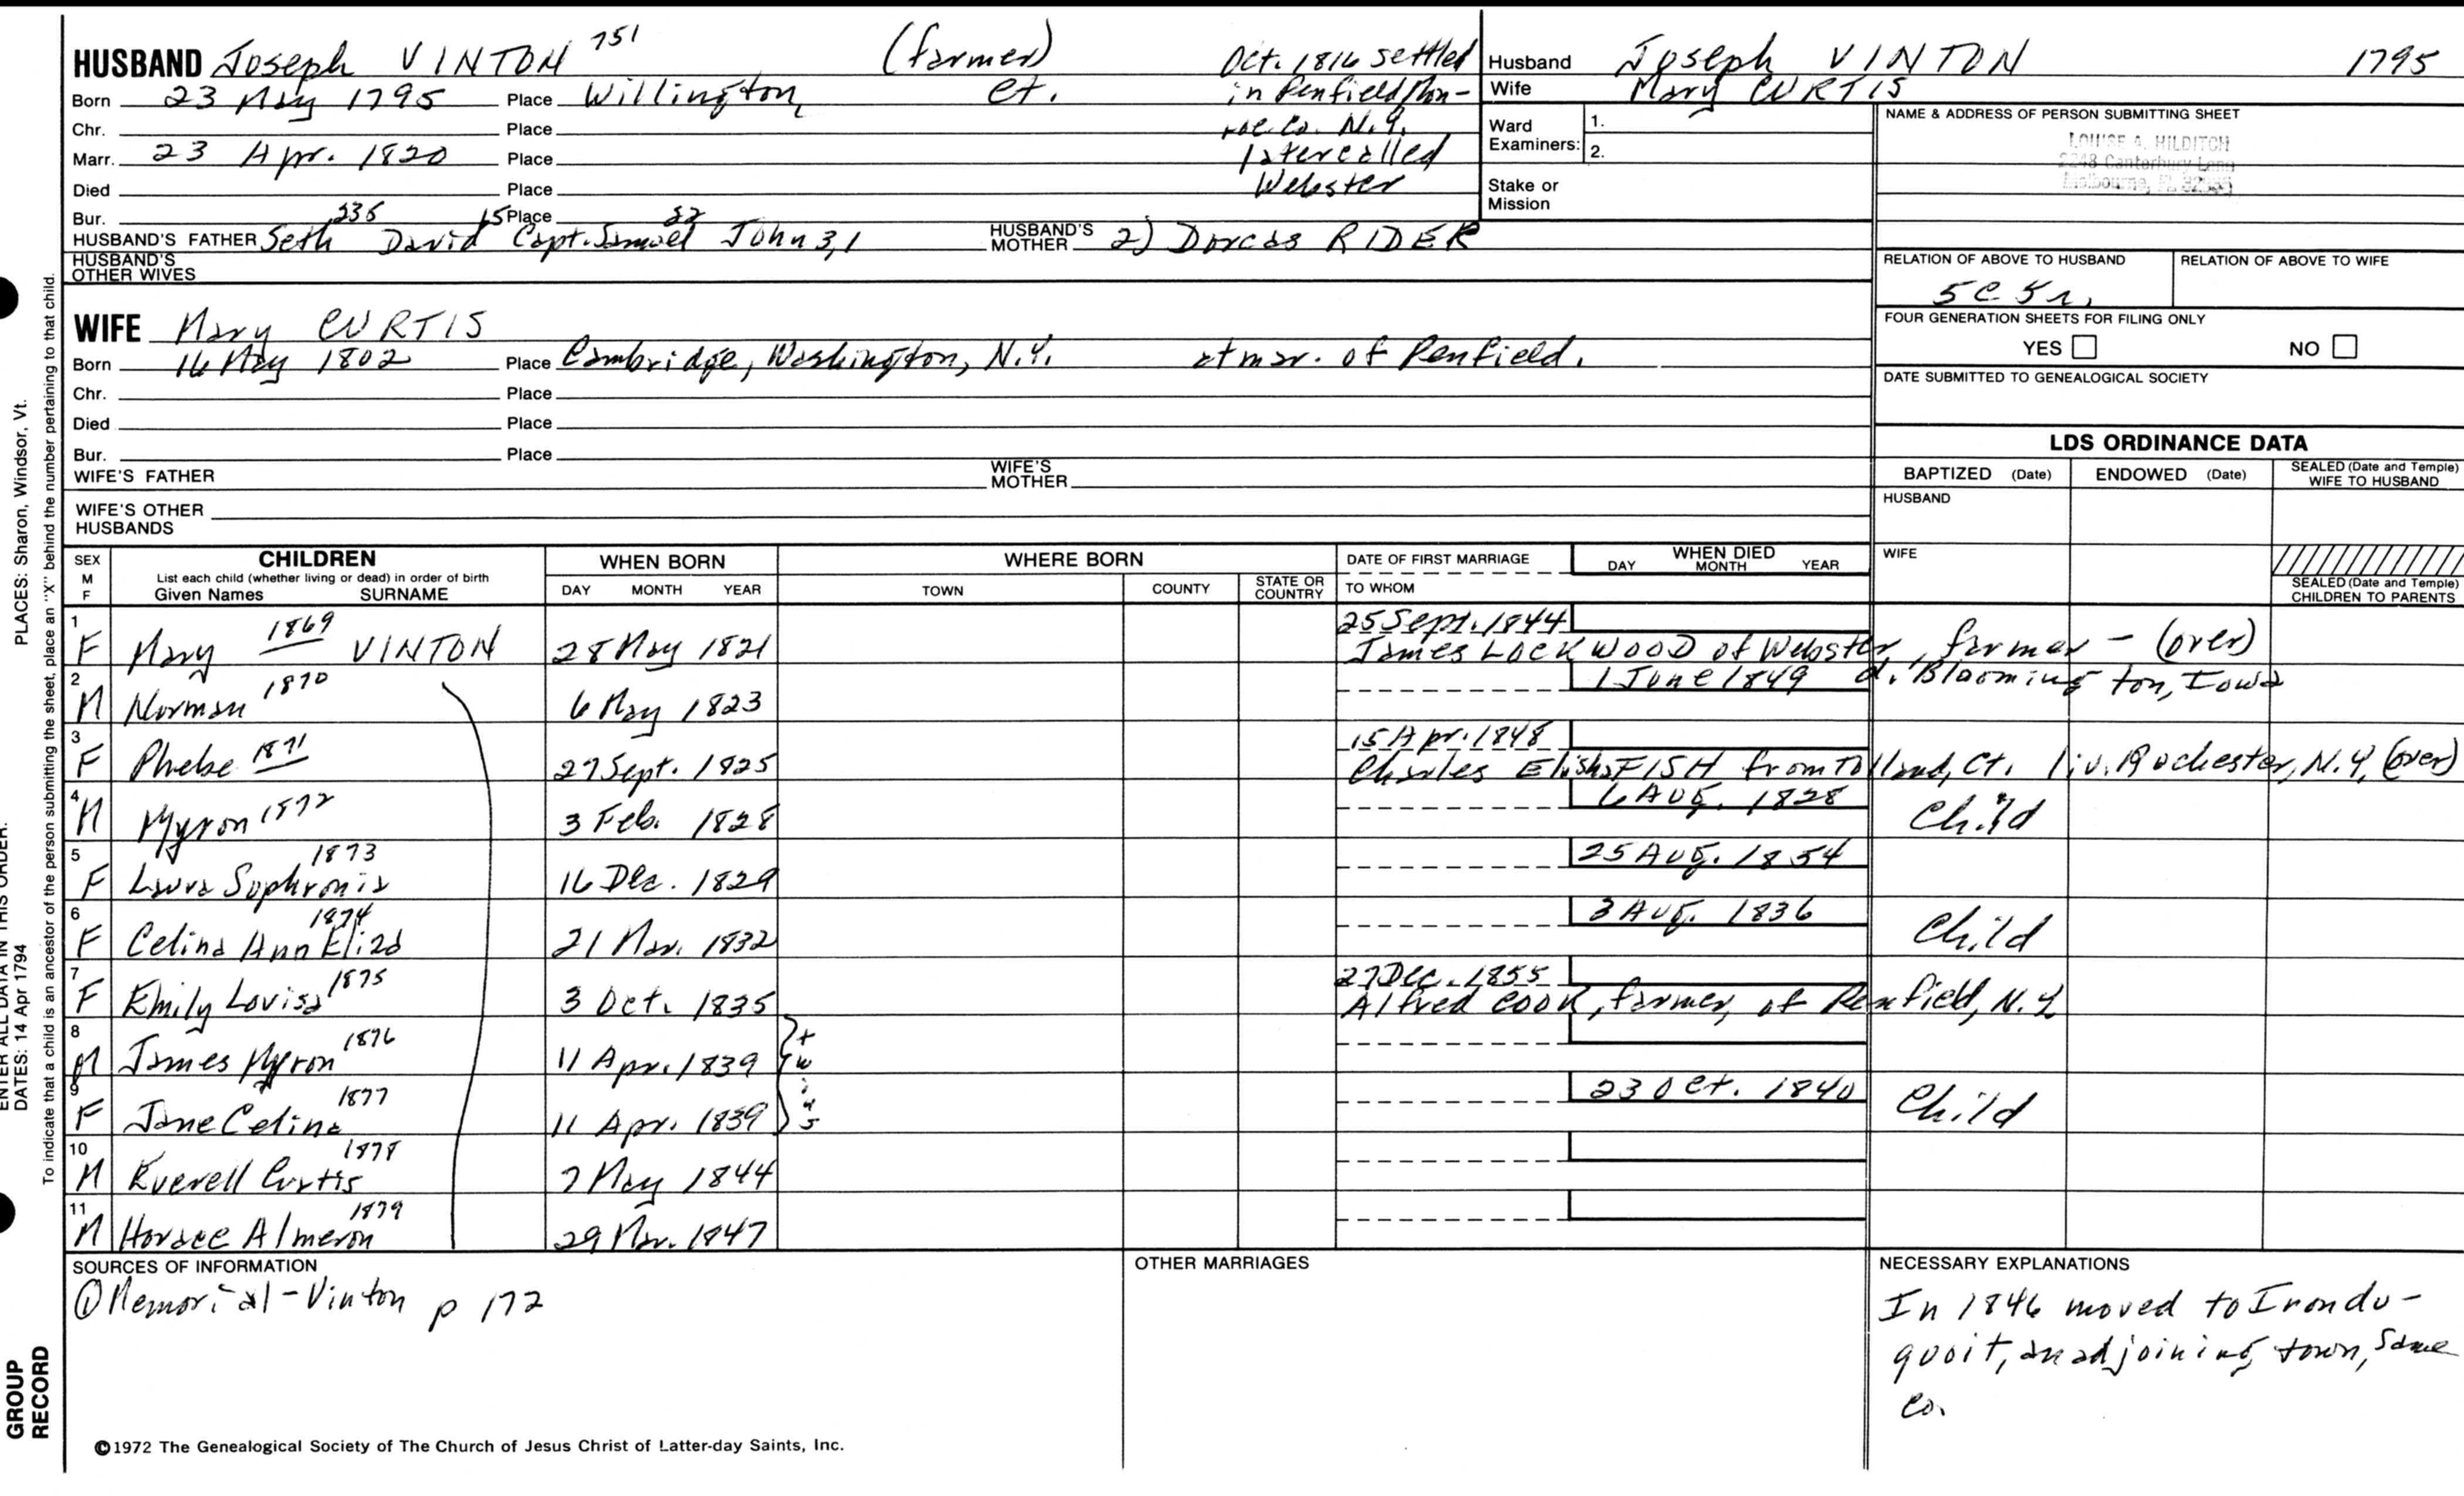 HUSBAND Joseph VINTON 751 (farmer) Oct. 1816 settled
Born 23 May 1795 Place Willington, Ct. in Penfield, Mon-
Chr. Place roe Co. N.Y.
Marr. 23 Apr. 1820 Place later called
Died Place Webster
Bur. Place
HUSBAND'S FATHER Seth 236 David 15 Capt. Samuel 52 John 3,1 HUSBAND'S MOTHER 2) Dorcas RIDER
HUSBAND'S OTHER WIVES
WIFE Mary CURTIS
Born 16 May 1802 Place Cambridge, Washington, N.Y. at mar. of Penfield.
Chr. Place
Died Place
Bur. Place
WIFE'S FATHER WIFE'S MOTHER
WIFE'S OTHER HUSBANDS
Husband Joseph VINTON 1795
Wife Mary CURTIS
Ward Examiners: 1.
2.
Stake or Mission
NAME & ADDRESS OF PERSON SUBMITTING SHEET
LOUISE A. HILDITCH
2248 Canterbury Lane
Melbourne, FL
RELATION OF ABOVE TO HUSBAND RELATION OF ABOVE TO WIFE
5C 5r.
FOUR GENERATION SHEETS FOR FILING ONLY
YES NO
DATE SUBMITTED TO GENEALOGICAL SOCIETY
LDS ORDINANCE DATA
BAPTIZED (Date) ENDOWED (Date) SEALED (Date and Temple) WIFE TO HUSBAND
HUSBAND
WIFE
SEALED (Date and Temple) CHILDREN TO PARENTS
SEX M F
CHILDREN
List each child (whether living or dead) in order of birth
Given Names SURNAME
WHEN BORN
DAY MONTH YEAR
WHERE BORN
TOWN COUNTY STATE OR COUNTRY
DATE OF FIRST MARRIAGE
TO WHOM
WHEN DIED
DAY MONTH YEAR
1 25 Sept. 1844
F Mary 1869 VINTON 28 May 1821 James LOCKWOOD of Webster, farmer - (over)
2 1 June 1849 d. Bloomington, Iowa
M Norman 1870 6 May 1823
3 15 Apr. 1848
F Phebe 1871 27 Sept. 1825 Charles Elisha FISH from Tolland, Ct. liv. Rochester, N.Y. (over)
4 6 Aug. 1828 Child
M Myron 1872 3 Feb. 1828
5 25 Aug. 1854
F Laura Sophronia 1873 16 Dec. 1829
6 3 Aug. 1836 Child
F Celina Ann Eliza 1874 21 Mar. 1832
7 27 Dec. 1855
F Emily Lovisa 1875 3 Oct. 1835 Alfred COOK, farmer, of Penfield, N.Y.
8
M James Myron 1876 11 Apr. 1839 twins
9 23 Oct. 1840 Child
F Jane Celina 1877 11 Apr. 1839
10
M Everell Curtis 1878 7 May 1844
11
M Horace Almeron 1879 29 Mar. 1847
SOURCES OF INFORMATION
① Memorial - Vinton p 172
OTHER MARRIAGES
NECESSARY EXPLANATIONS
In 1846 moved to Irondu-
quoit, an adjoining town, same
Co.
©1972 The Genealogical Society of The Church of Jesus Christ of Latter-day Saints, Inc.
ENTER ALL DATA IN THIS ORDER:
DATES: 14 Apr 1794
PLACES: Sharon, Windsor, Vt.
To indicate that a child is an ancestor of the person submitting the sheet, place an "X" behind the number pertaining to that child.
GROUP
RECORD